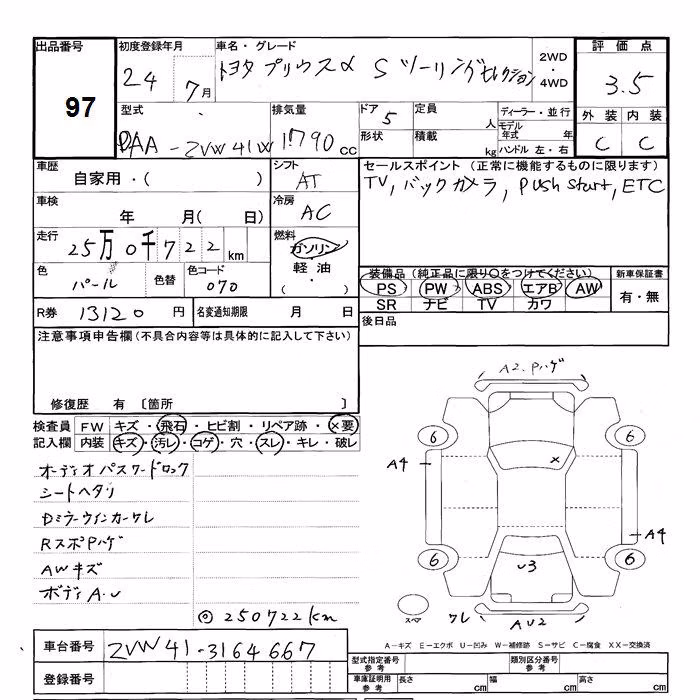 出品番号 初度登録年月 車名・グレード 2WD・4WD 評価点
97 24 7月 トヨタ プリウスα S ツーリングセレクション 3.5
型式 排気量 ドア 5 定員 人 ディーラー・並行 外装 内装
DAA-ZVW41W 1790cc 形状 積載 kg モデル年式 年 ハンドル 左・右 C C
車歴 シフト セールスポイント(正常に機能するものに限ります)
自家用・( ) AT TV, バックカメラ, Push start, ETC
車検 冷房
年 月( 日) AC
走行 燃料
25万0千722km ガソリン
軽油・( )
色 パール 色替 色コード 070
装備品(純正品に限り○をつけてください) 新車保証書
PS PW ABS エアB AW 有・無
SR ナビ TV カワ
R券 13120円 名変通知期限 月 日 後日品
注意事項申告欄(不具合内容等は具体的に記入して下さい)
修復歴 有 〔箇所 〕
検査員記入欄 FW キズ・飛石・ヒビ割・リペア跡・×要
内装 キズ・汚レ・コゲ・穴・スレ・キレ・破レ
オーディオパスワードロック
シートヘタリ
Dミラーウインカーワレ
RスポPハゲ
AWキズ
ボディA.U
◎250722km
A2.Pハゲ
6 6
A4 ×
A4
6 6
U3
スペア ワレ AU2
A-キズ E-エクボ U-凹み W-補修跡 S-サビ C-腐食 XX-交換済
車台番号 ZVW41-3164667
型式指定番号 参考 類別区分番号 参考
登録番号 車庫証明用 参考 長さ cm 幅 cm 高さ cm